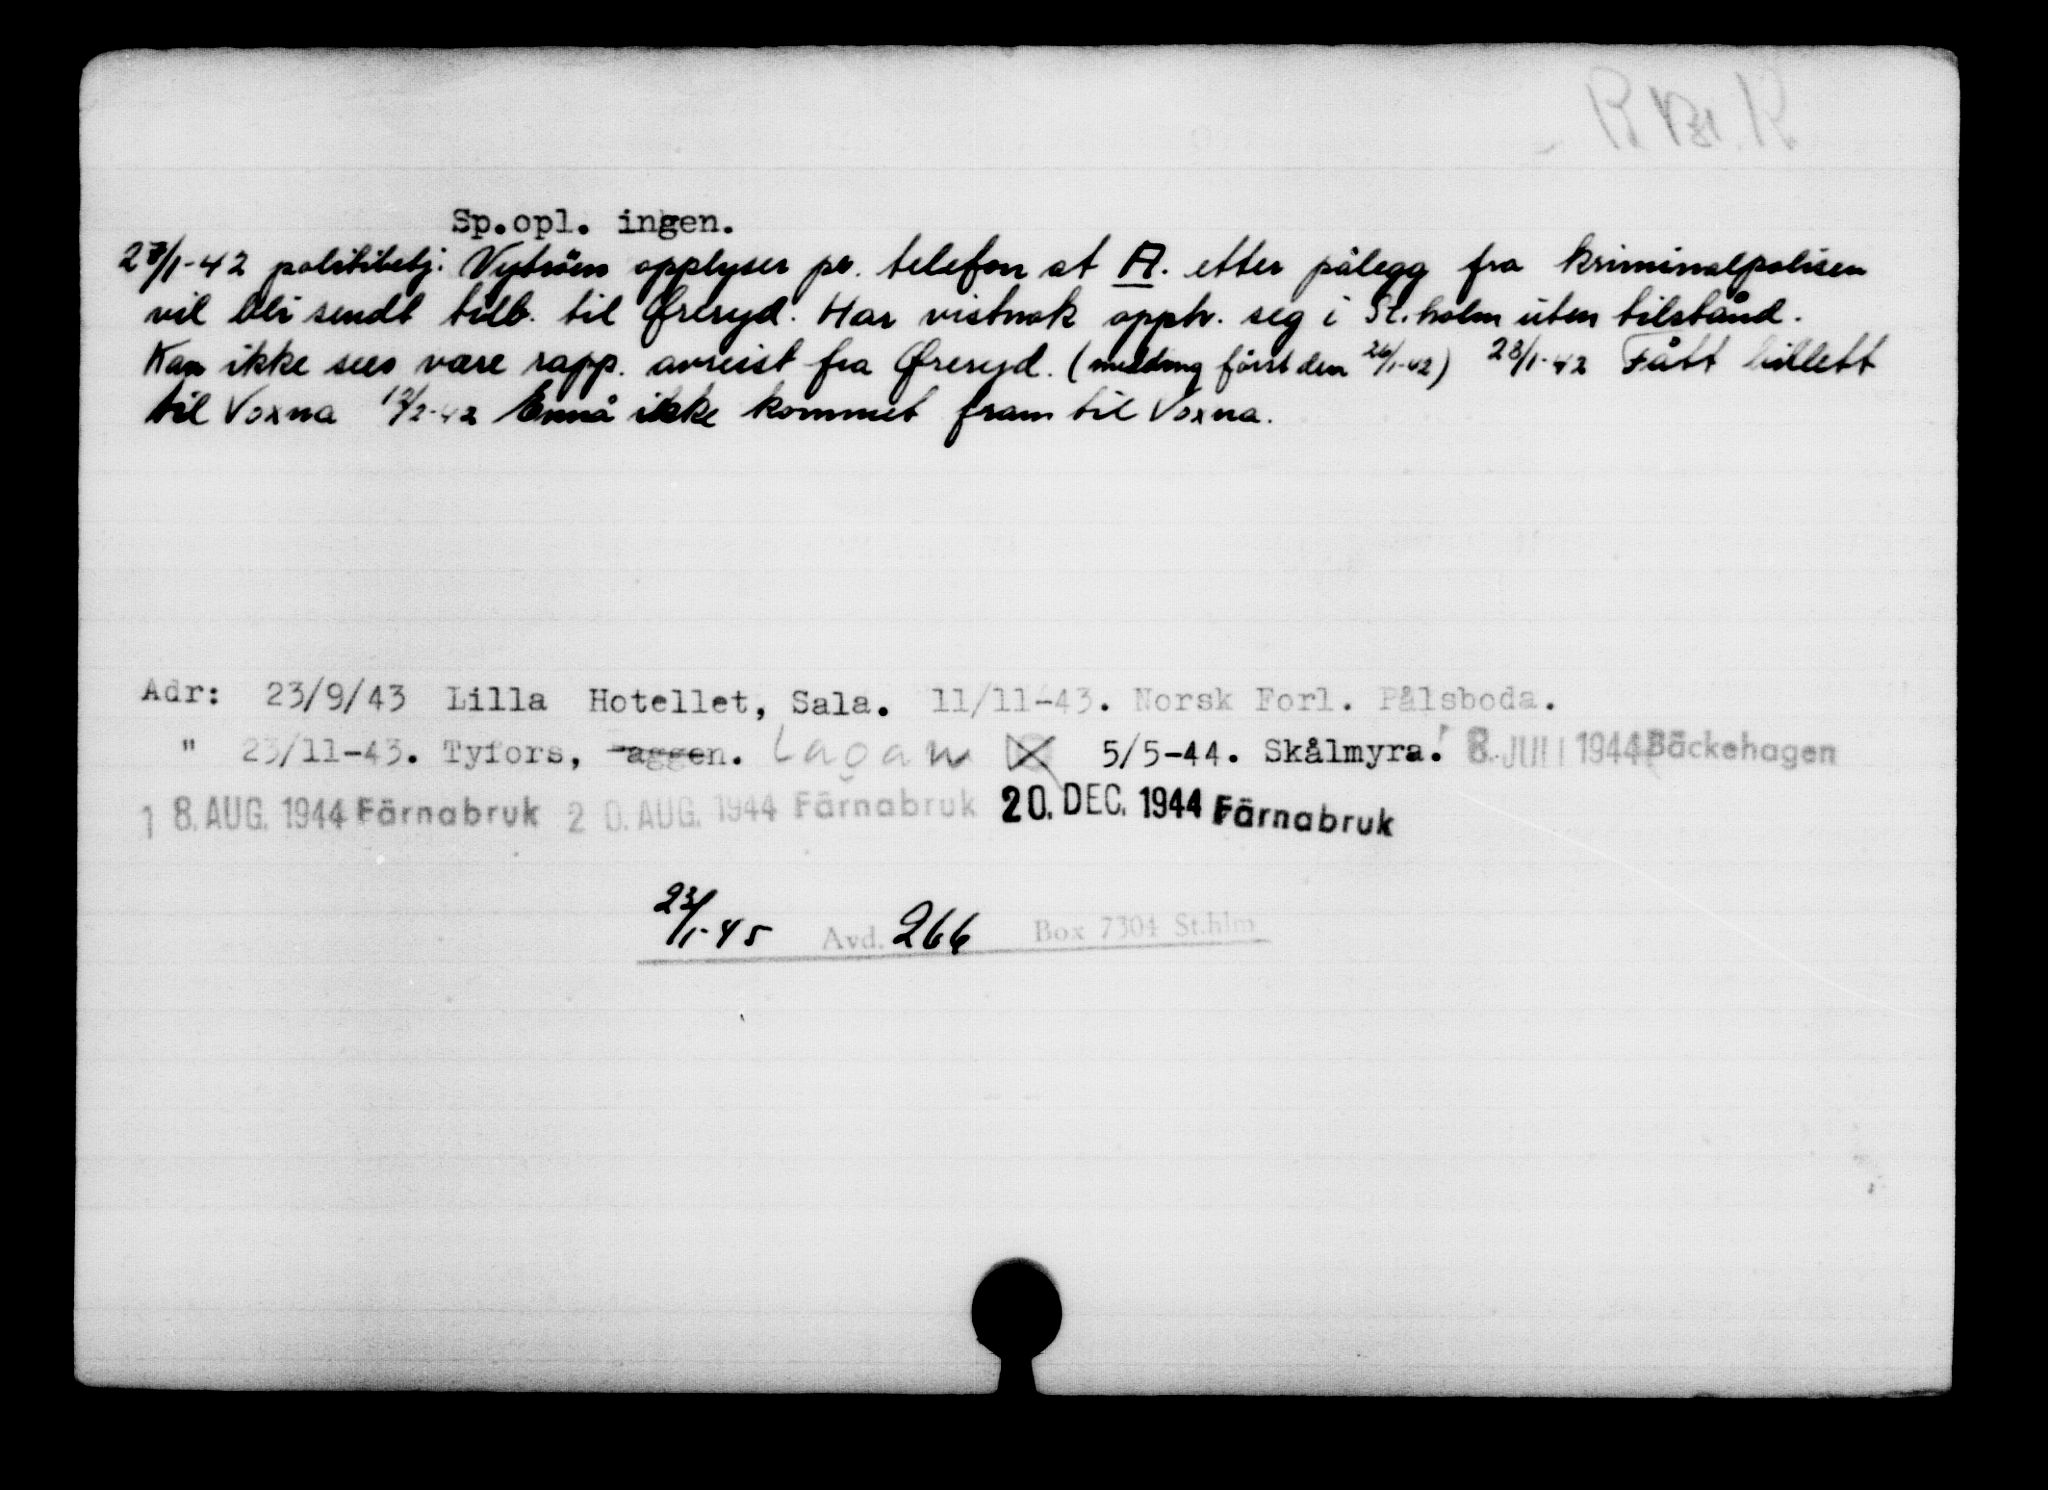 Sp.opl. ingen.
23/1-42 politibetj. Nyström opplyser pr. telefon at A. etter pålegg fra kriminalpolisen
vil bli sendt tilb. til Øreryd. Har vistnok opph. seg i St.holm uten tilstånd.
Kan ikke sees være rapp. avreist fra Øreryd. (melding först den 26/1-42) 28/1-42 Fått billett
til Voxna 12/2-42 Ennå ikke kommet fram til Voxna.
Adr: 23/9/43 Lilla Hotellet, Sala. 11/11-43. Norsk Forl. Pålsboda.
" 23/11-43. Tyfors, aggen. Lagan 5/5-44. Skålmyra. 8. JULI 1944 Bäckehagen
18. AUG. 1944 Färnabruk 20. AUG. 1944 Färnabruk 20. DEC. 1944 Färnabruk
23/1-45 Avd. 266 Box 7304 St.hlm